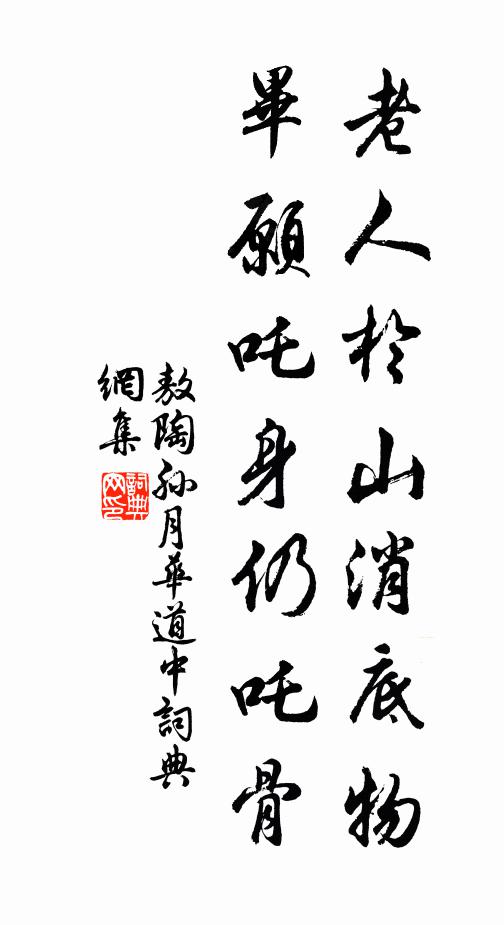 老人於山消底物
畢願吒身仍吒骨
敖陶孫月華道中詞典
網集
詞典網印